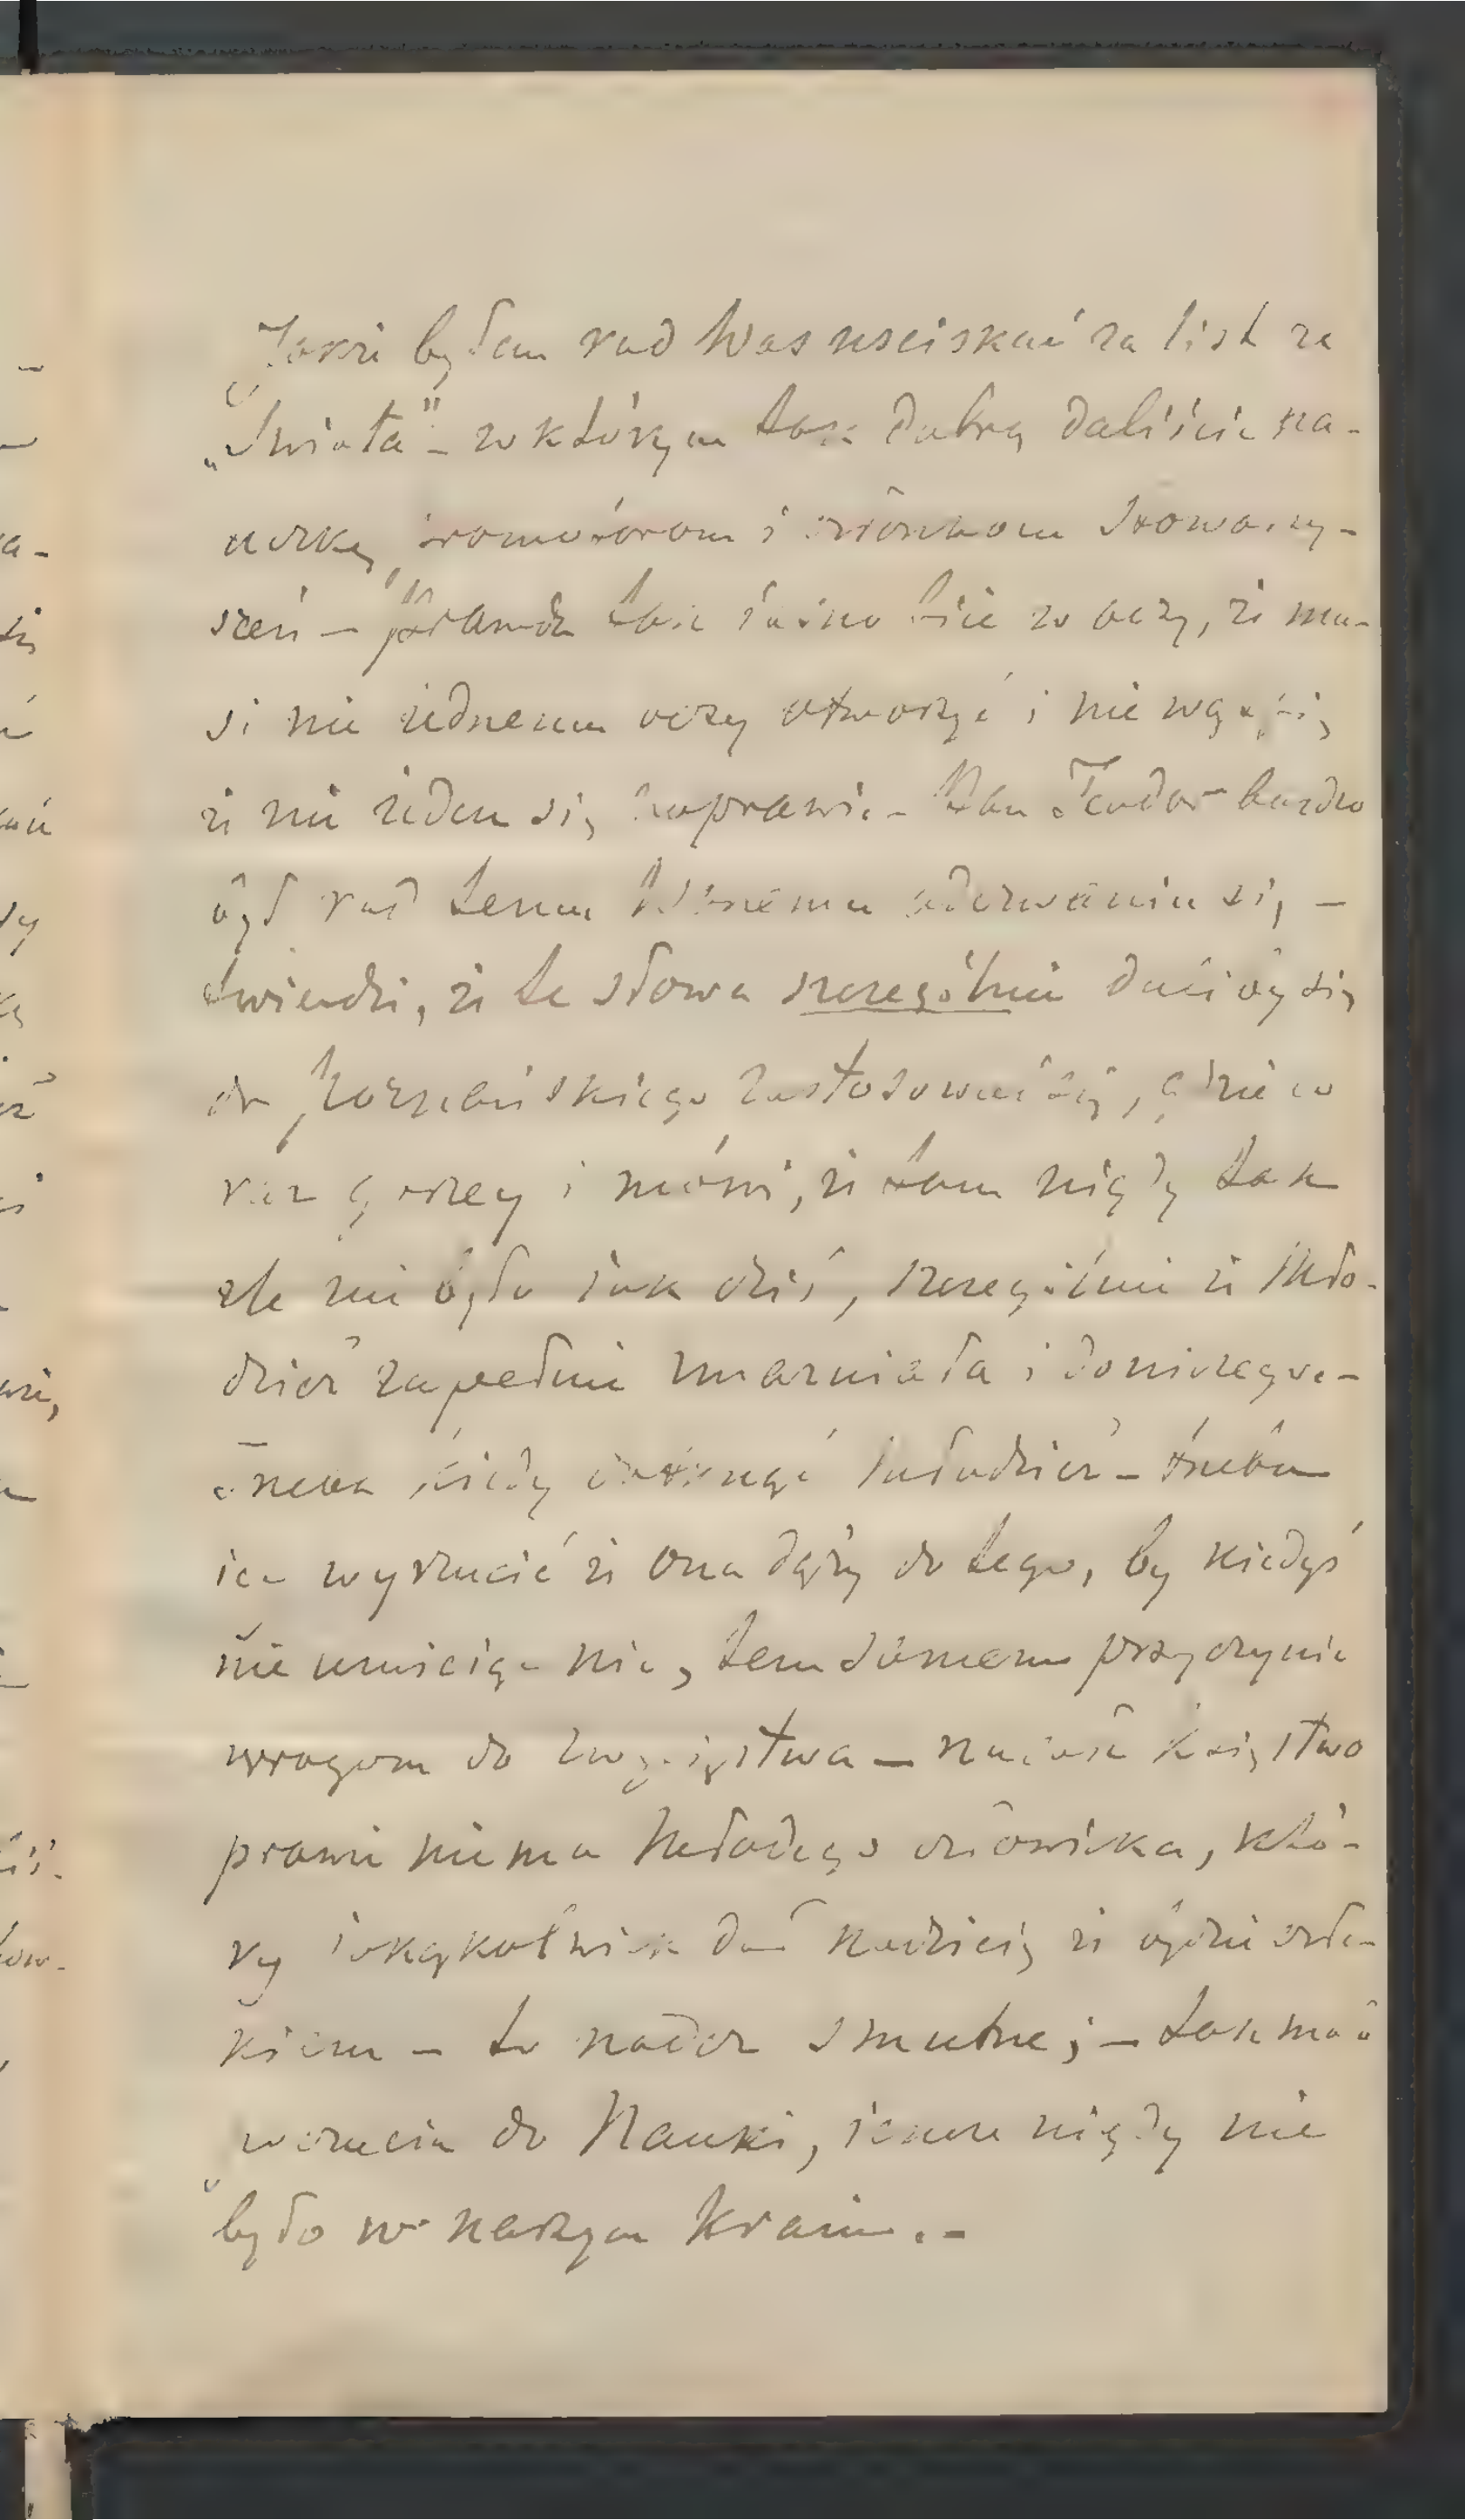 Jakże byłem rad Was uściskać za list ze
„Świata" – w którym tak dobrą daliście na-
uczkę i członkom Stowarzy-
szeń – prawda tak jasno bije w oczy, że mu-
si nie jednemu oczy otworzyć i nie wątpię
że nie jeden się poprawi – Pan Teodor bardzo
był rad temu odezwaniu się –
twierdzi, że te słowa szczególnie dałiby się
do Poznańskiego zastosować się, gdzie co
raz gorzej i mówi, że tam nigdy tak
źle nie było jak dziś, szczególnie że Mło-
dzież zupełnie zmarniała i do niczego –
młodzież – trzeba
jej wyrzucić że ona dąży do tego, by kiedyś
nie umiejąc nic, tem samem przyczynić
wrogom do zwycięstwa – Księstwo
prawie nie ma Młodego człowieka, któ-
ry jakąkolwiek dał nadzieję że będzie
– to nader smutne; – tak mało
uczucia do Nauki, nigdy nie
było w naszym Kraju. –